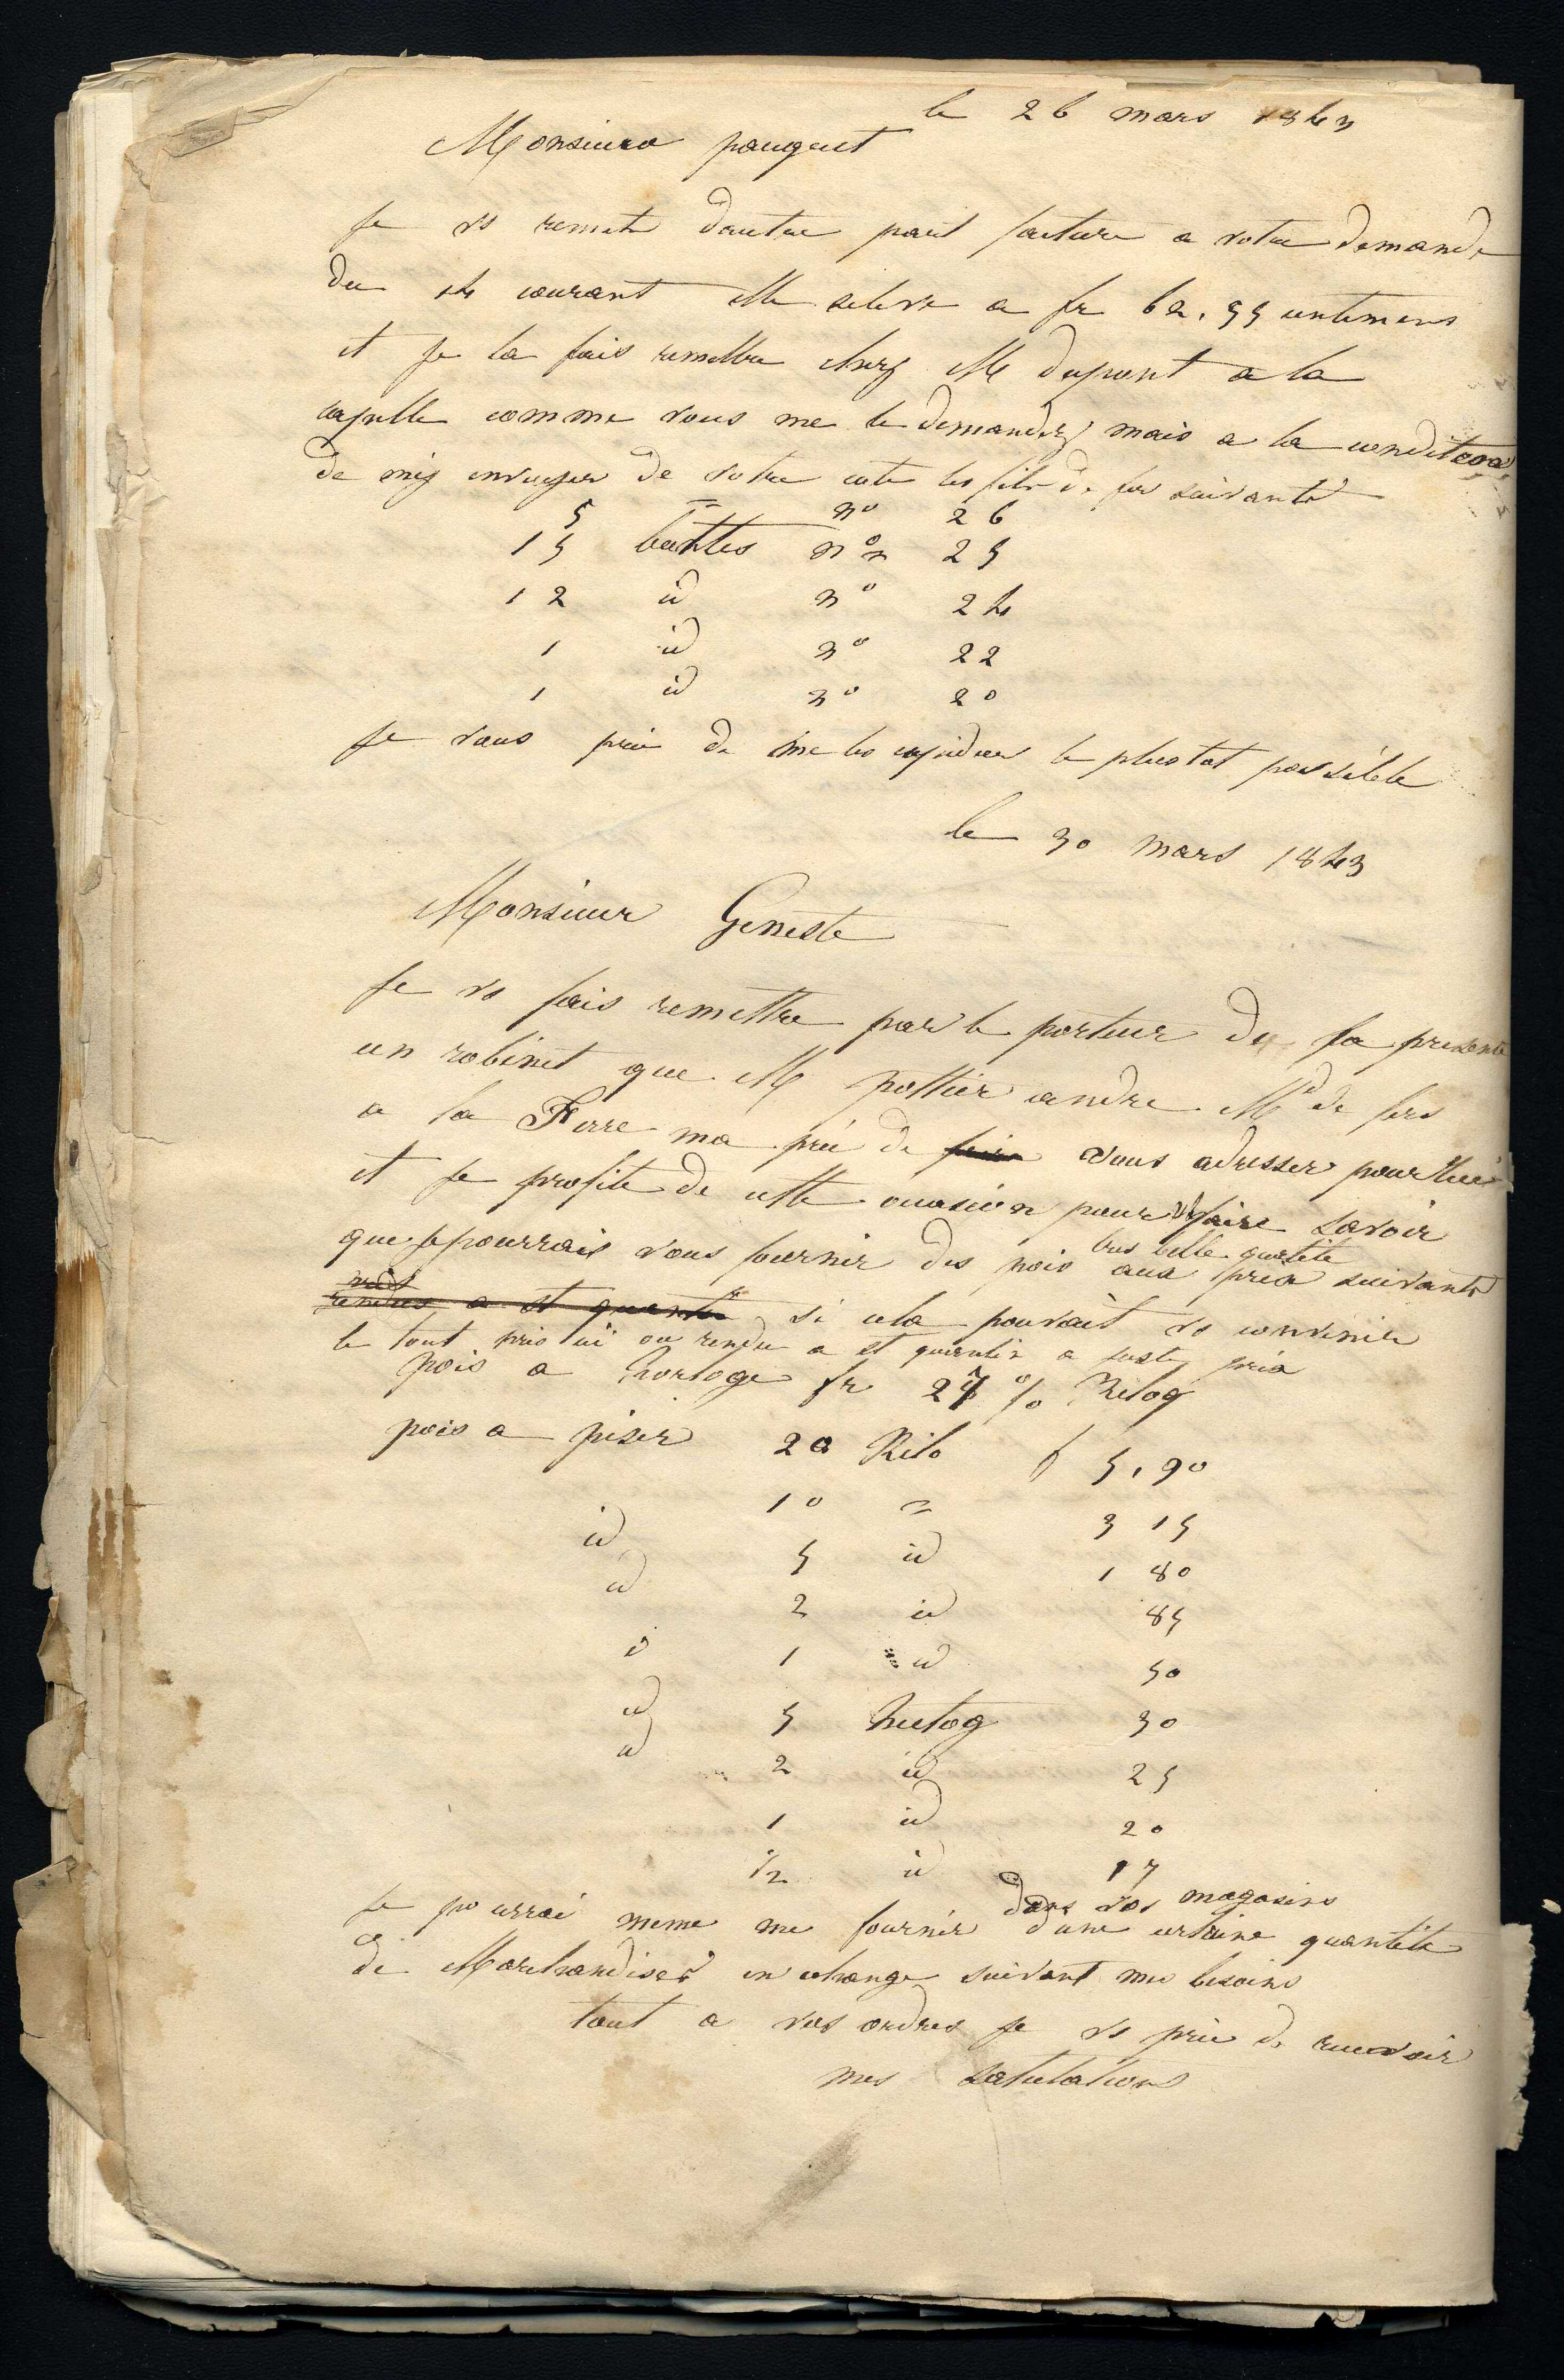 le 26 mars 1843
Monsieur paugeut
Je vs remets dautre part facture a votre demande
du 14 courant elle seleve a fr 62,55 centimens
et Je la fais remettre chez M dupont a la
capelle comme vous me le demandez mais a la condition
de my envoyer de votre cote les fils de fer suivants
5 = n° 26
15 bottes n° 25
12 id n° 24
1 id n° 22
1 id n° 20
Je vous prie de me les expedier le plustot possible
le 30 mars 1843
Monsieur Geneste
Je vs fais remettre par le porteur de la presente
un robinet que M pottier andre Md de fers
a la Ferre ma prié de faire vous adresser pour lui
et Je profite de cette occasion pour vs faire savoir
tres belle qualité
que Je pourrais vous fournir des pois aux prix suivants
rendus a st quentin si cela pouvait vs convenir
le tout pris ici ou rendu a st quentin a juste prix
pois a horloge fr 27 % Kilog
pois a peser 20 Kilo f 5,90
id 10 = 3 15
id 5 id 1 80
id 2 id 85
id 1 id 50
id 5 hectog 30
2 id 25
1 id 20
1/2 id 17
dans vos magasins
Je pourrai meme me fournir dune certaine quantité
de Marchandises en echange suivant mes besoins
tout a vos ordres Je vs prie de recevoir
mes salutations